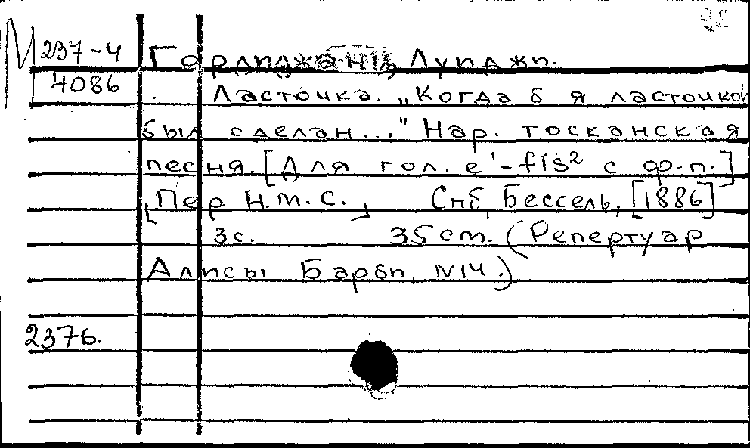 М 237-4 Горлиджани, Луиджи.
4086 Ласточка. „Когда б я ласточкой
был сделан..." Нар. тосканская
песня. [Для гол. e'-fis² с ф.п.]
[Пер Н.М.С.] Спб, Бессель, [1886]
3с. 35cm. (Репертуар
Алисы Барби, N14.)
2376.